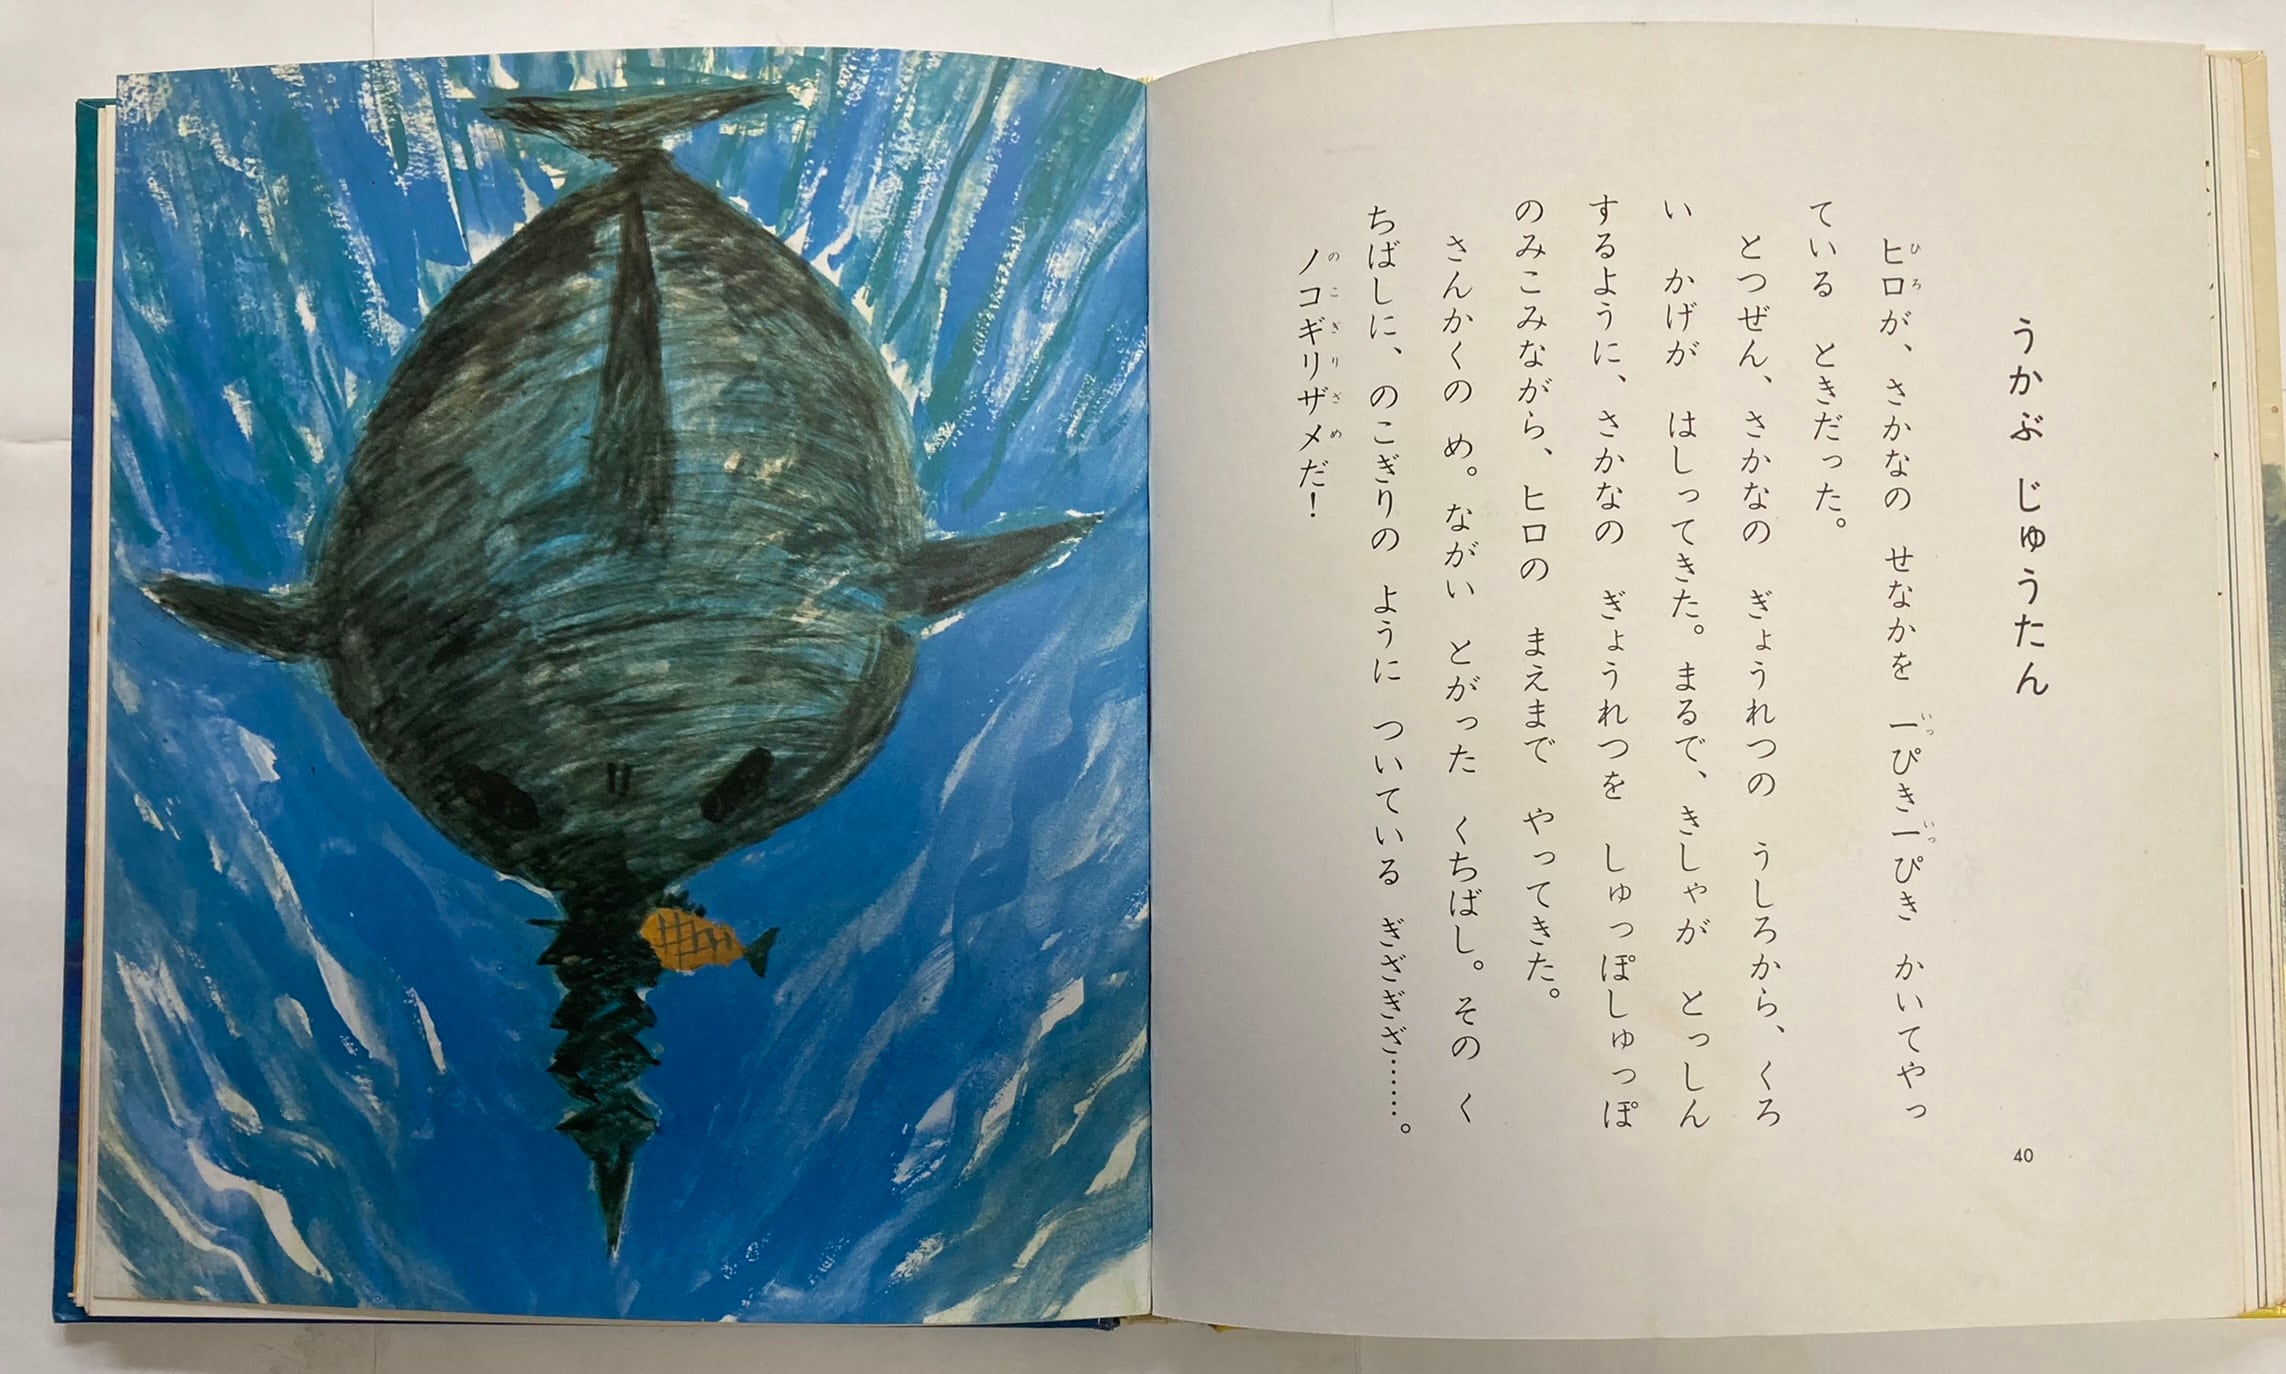 うかぶ じゅうたん
ヒロが、さかなの せなかを 一ぴき一ぴき かいてやっ
ている ときだった。
とつぜん、さかなの ぎょうれつの うしろから、くろ
い かげが はしってきた。まるで、きしゃが とっしん
するように、さかなの ぎょうれつを しゅっぽしゅっぽ
のみこみながら、ヒロの まえまで やってきた。
さんかくの め。ながい とがった くちばし。その く
ちばしに、のこぎりの ように ついている ぎざぎざ……。
ノコギリザメだ!
ひろ
いっ
いっ
のこぎりざめ
40